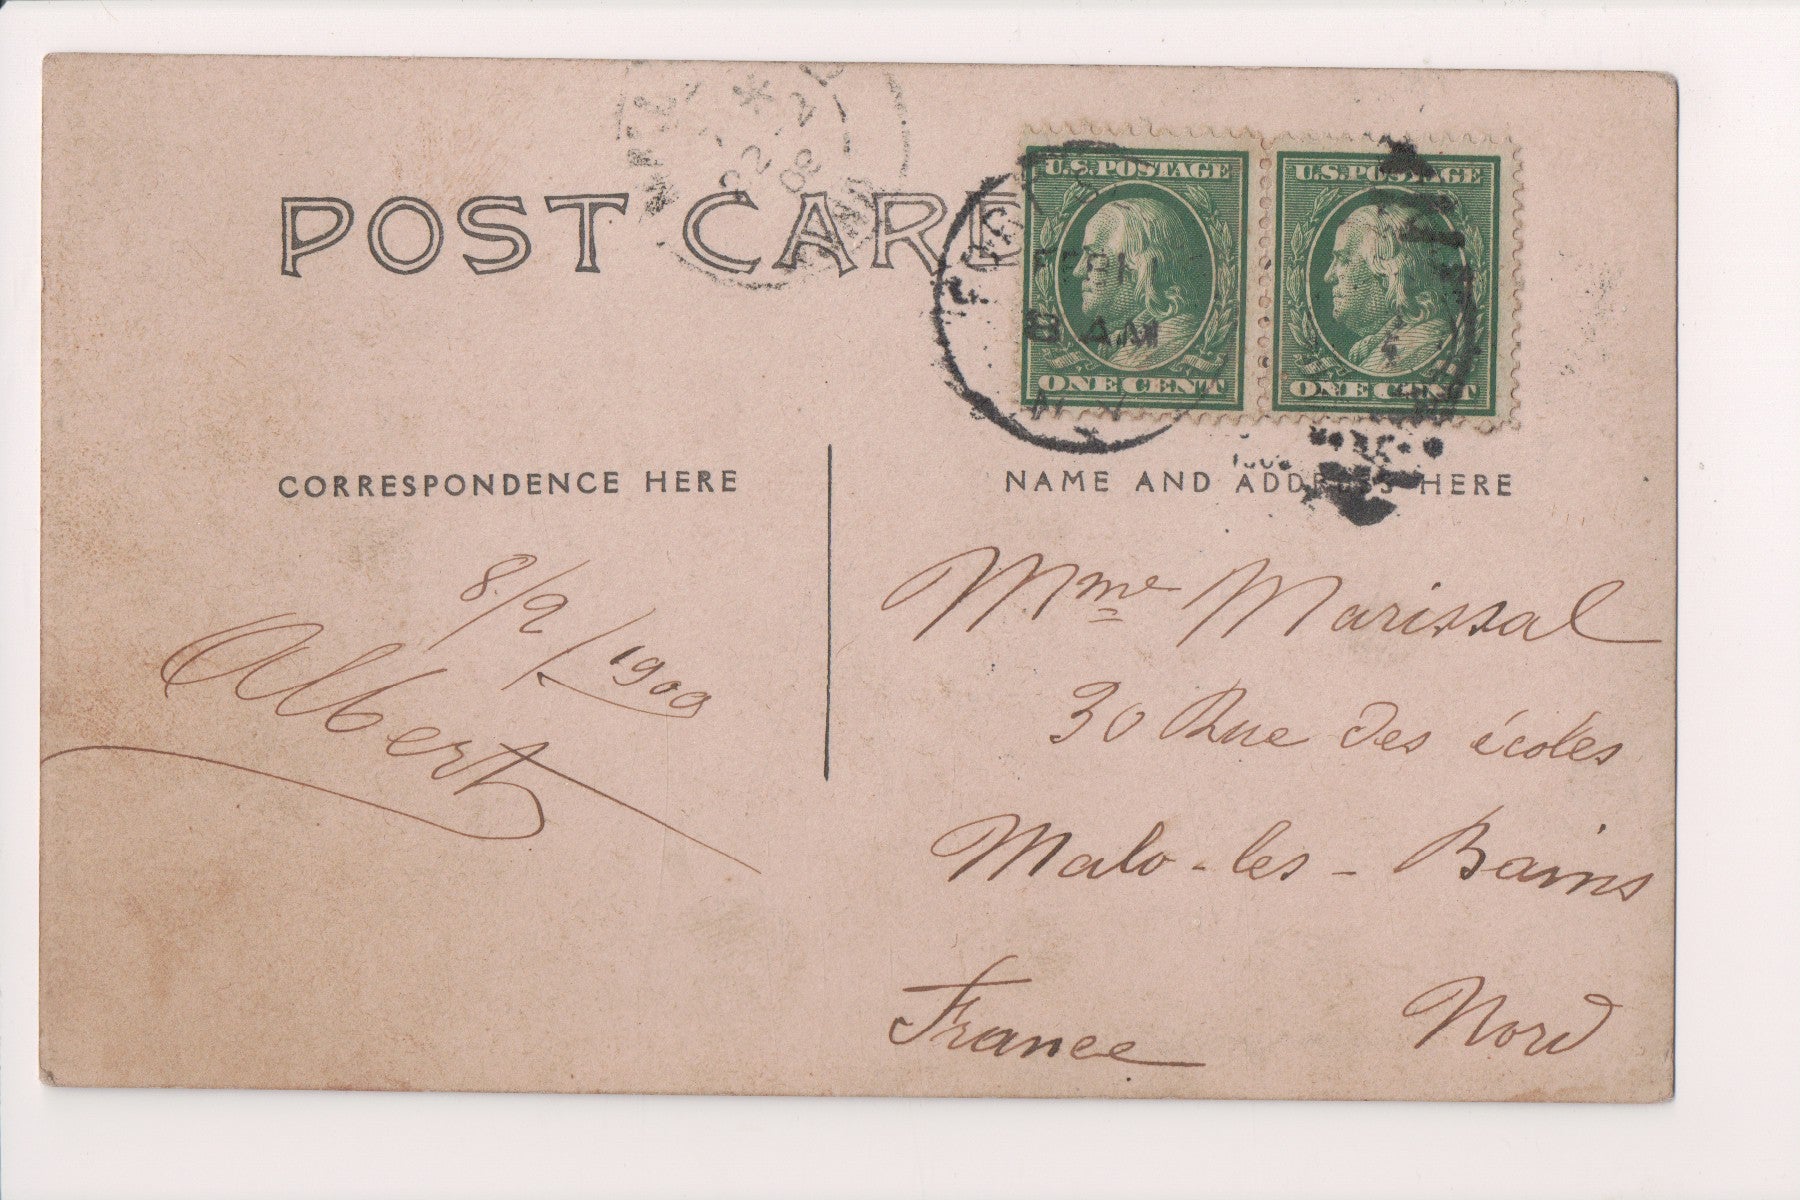 POST CARD
U.S. POSTAGE
ONE CENT
U.S. POSTAGE
ONE CENT
8 AM
N.Y.
CORRESPONDENCE HERE
NAME AND ADDRESS HERE
8/2/1909
Albert
Mme Marissal
30 Rue des écoles
Malo-les-Bains
France Nord